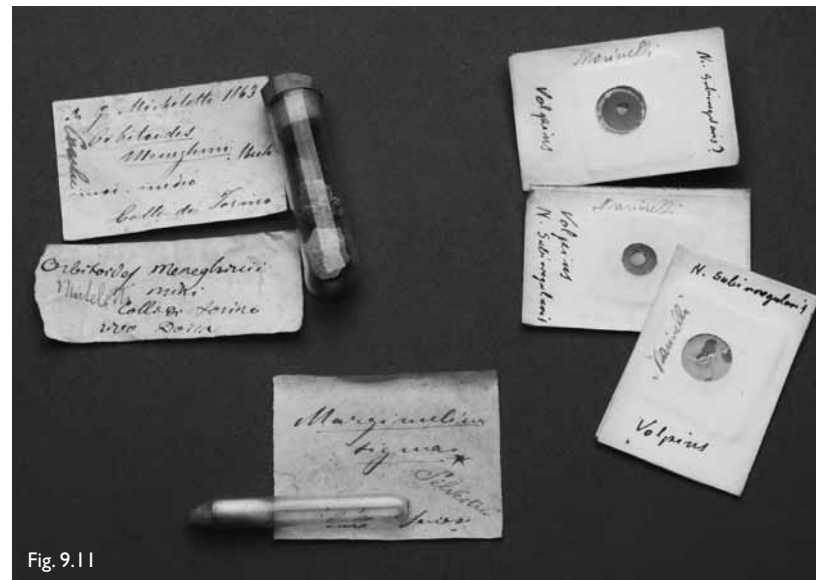 g. Michelotti 1863
Orbitoides
Meneghini
medio
Colli di Torino
Orbitoides meneghinii
Michelotti
Colli di Torino
Marginulina
sigma
Silvestri
Marinelli
Volpins
N. Subirregularis?
Marinelli
Volpins
N. Subirregularis
N. Subirregularis
Marinelli
Volpins
Fig. 9.11